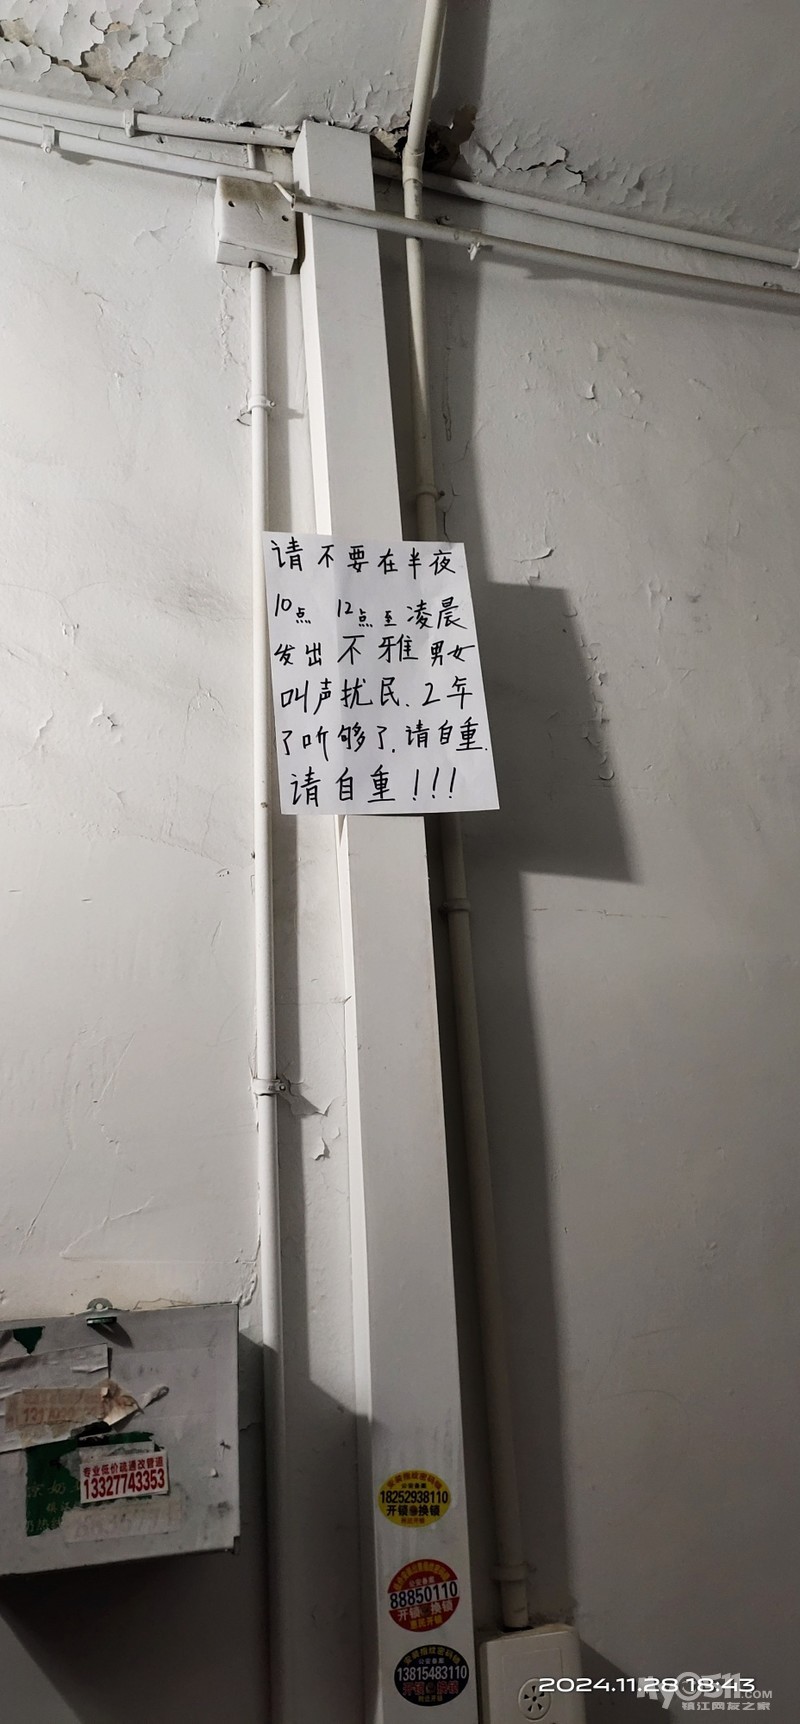 请不要在半夜
10点 12点至凌晨
发出不雅男女
叫声扰民、2年
了听够了.请自重.
请自重!!!
专业低价疏通改管道
13327743353
18252938110
开锁 换锁
公安备案
88850110
开锁 换锁
惠民开锁
安装指纹密码锁
公安备案
13815483110
开锁 换锁
2024.11.28 18:43
my0511.COM
镇江网友之家